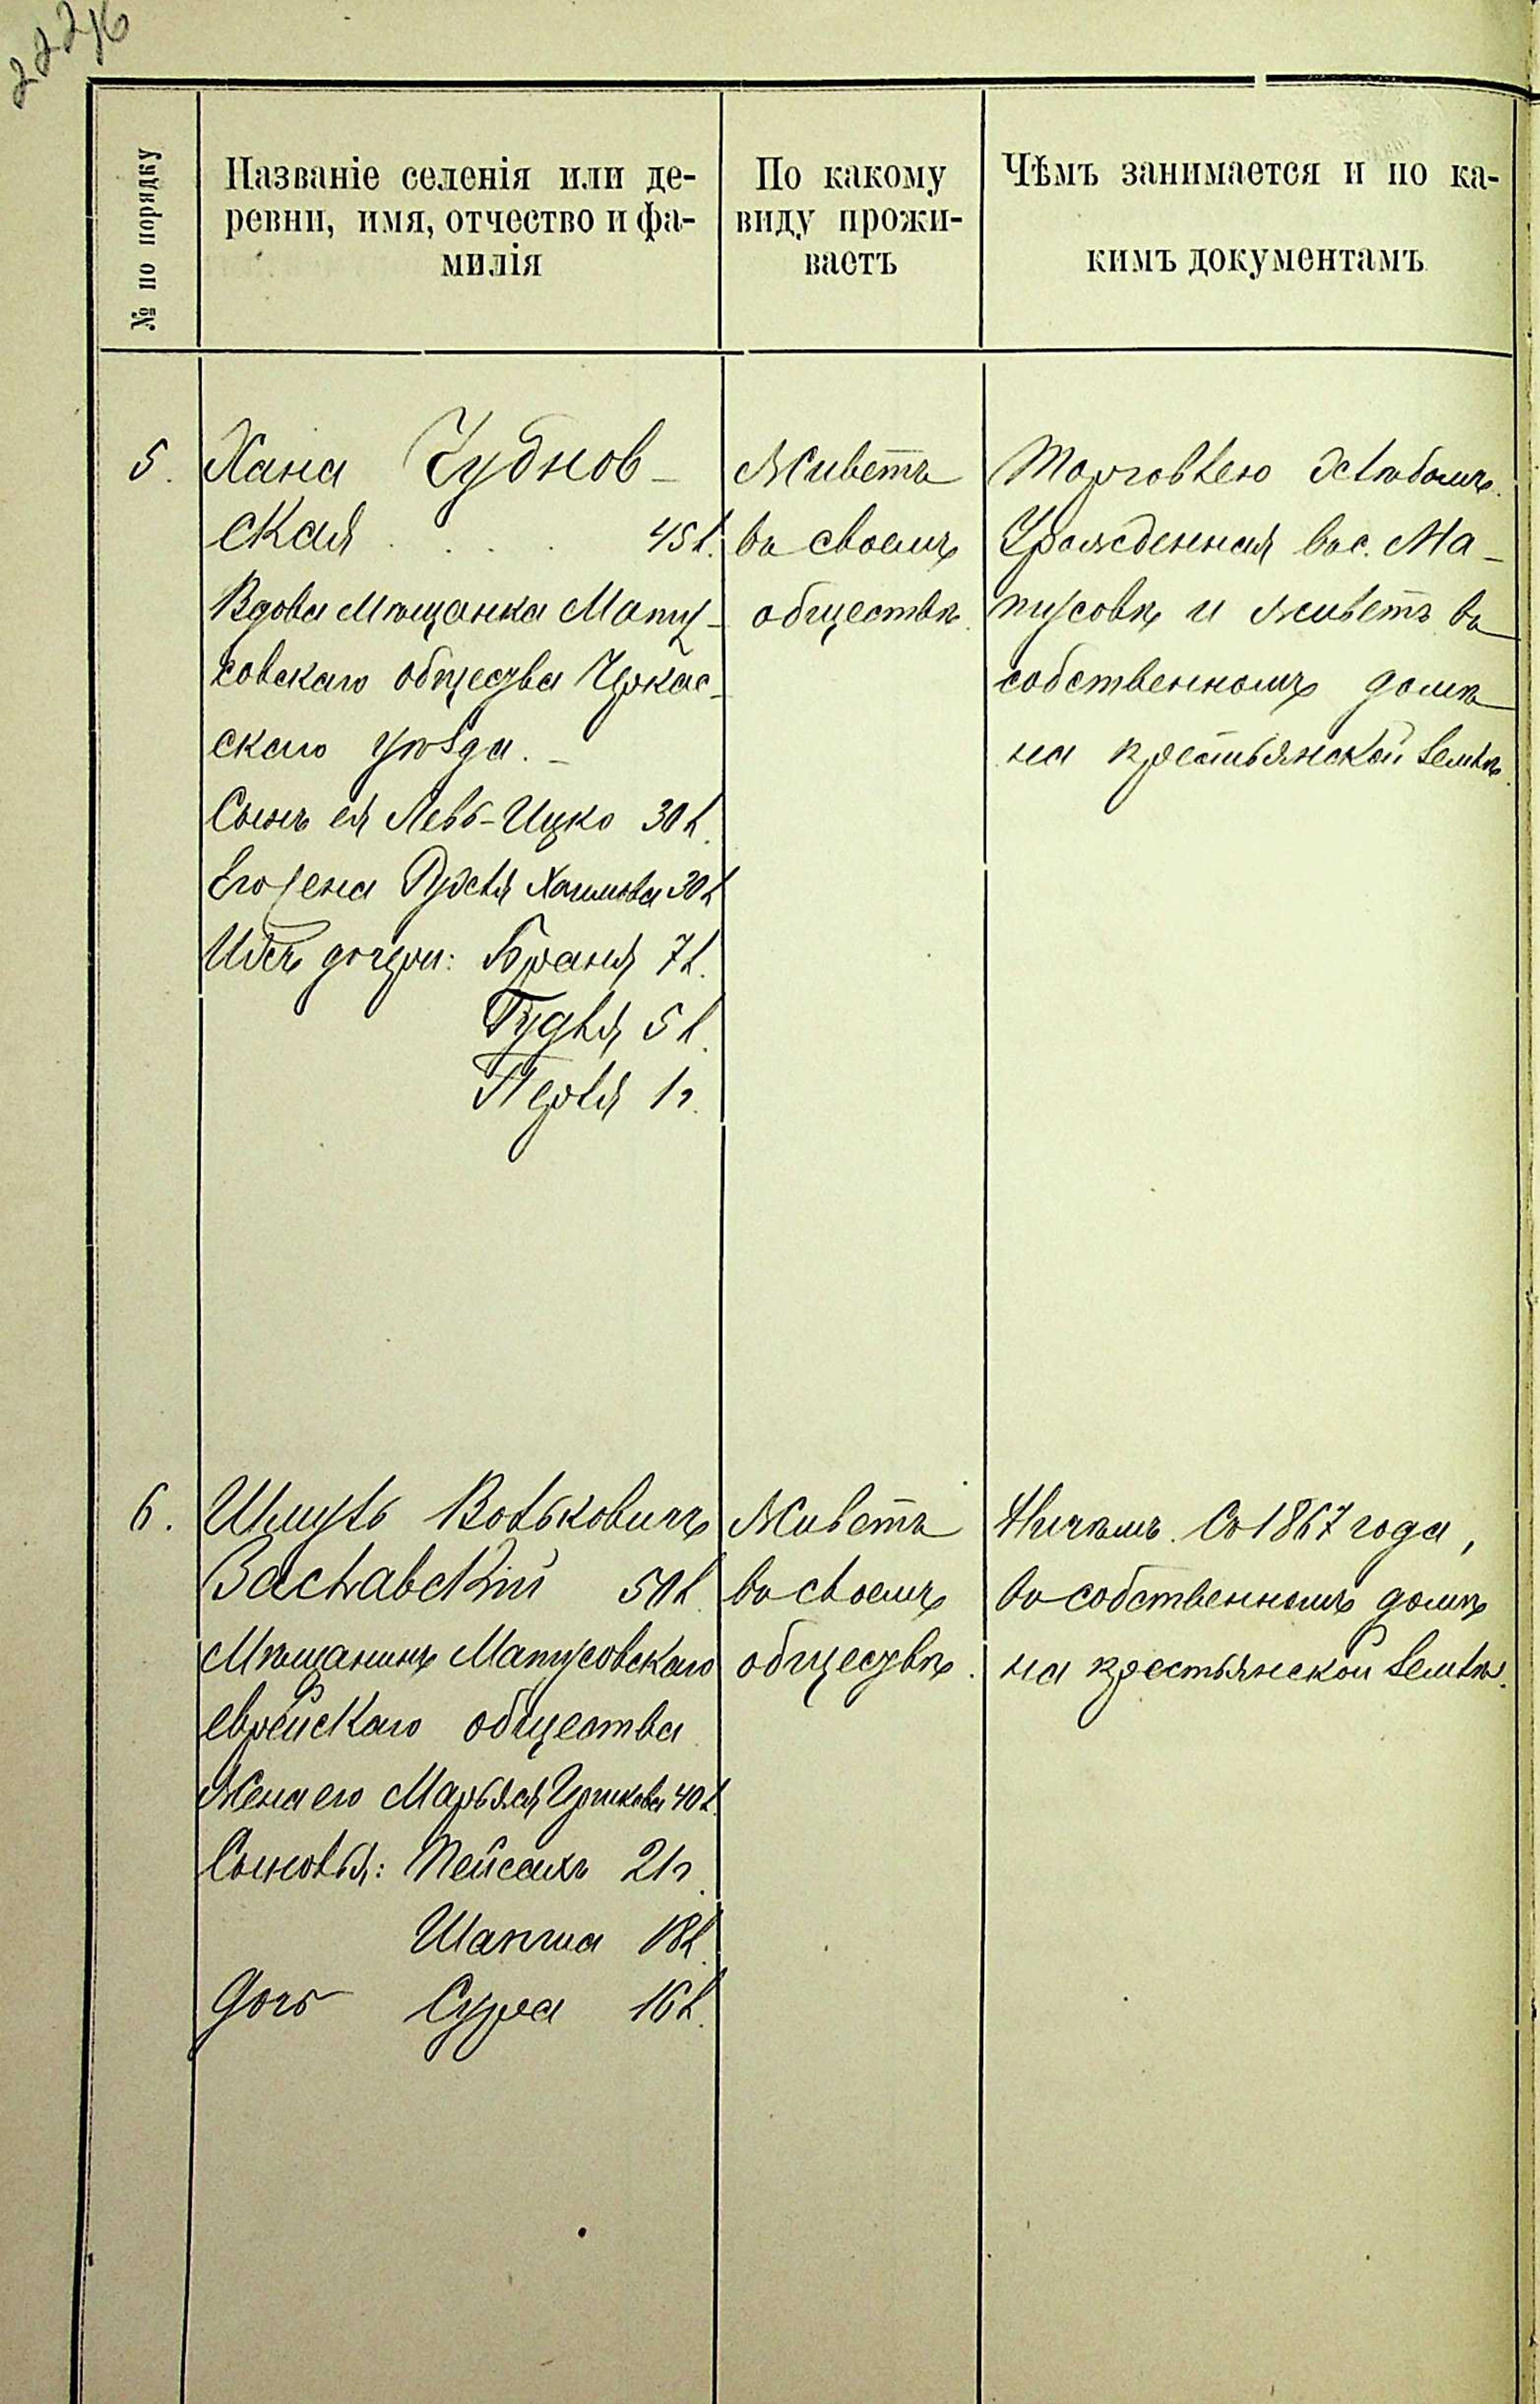 № по порядку
Названіе селенія или де-
ревни, имя, отчество и фа-
милія
По какому
виду прожи-
ваетъ
Чѣмъ занимается и по ка-
кимъ документамъ
5.
Хана Чубнов-
ская . . . . 45 л.
Вдова Мѣщанка Мату-
совскаго общества Черкас-
скаго уѣзда. –
Сынъ ея Левъ-Ицко 30 л.
Его жена Рухля Хаимова 30 л.
Ихъ дочери: Браня 7 л.
Гудля 5 л.
Перля 1 г.
Живетъ
въ своемъ
обществѣ.
Торговлею хлѣбомъ.
Урожденная въ с. Ма-
тусовѣ и живетъ въ
собственномъ домѣ
на крестьянской землѣ.
6.
Шмуль Вольковичъ
Заславскій 50 л.
Мѣщанинъ Матусовскаго
еврейскаго общества
Жена его Марьяся Гершкова 40 л.
Сыновья: Пейсахъ 21 г.
Шапша 18 л.
Дочь Сура 16 л.
Живетъ
въ своемъ
обществѣ.
Ничѣмъ. Съ 1867 года,
въ собственномъ домѣ
на крестьянской землѣ.